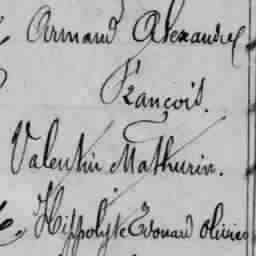 Armand Alexandre
François.
Valentin Mathurin.
Hippolyte Edouard Olivier